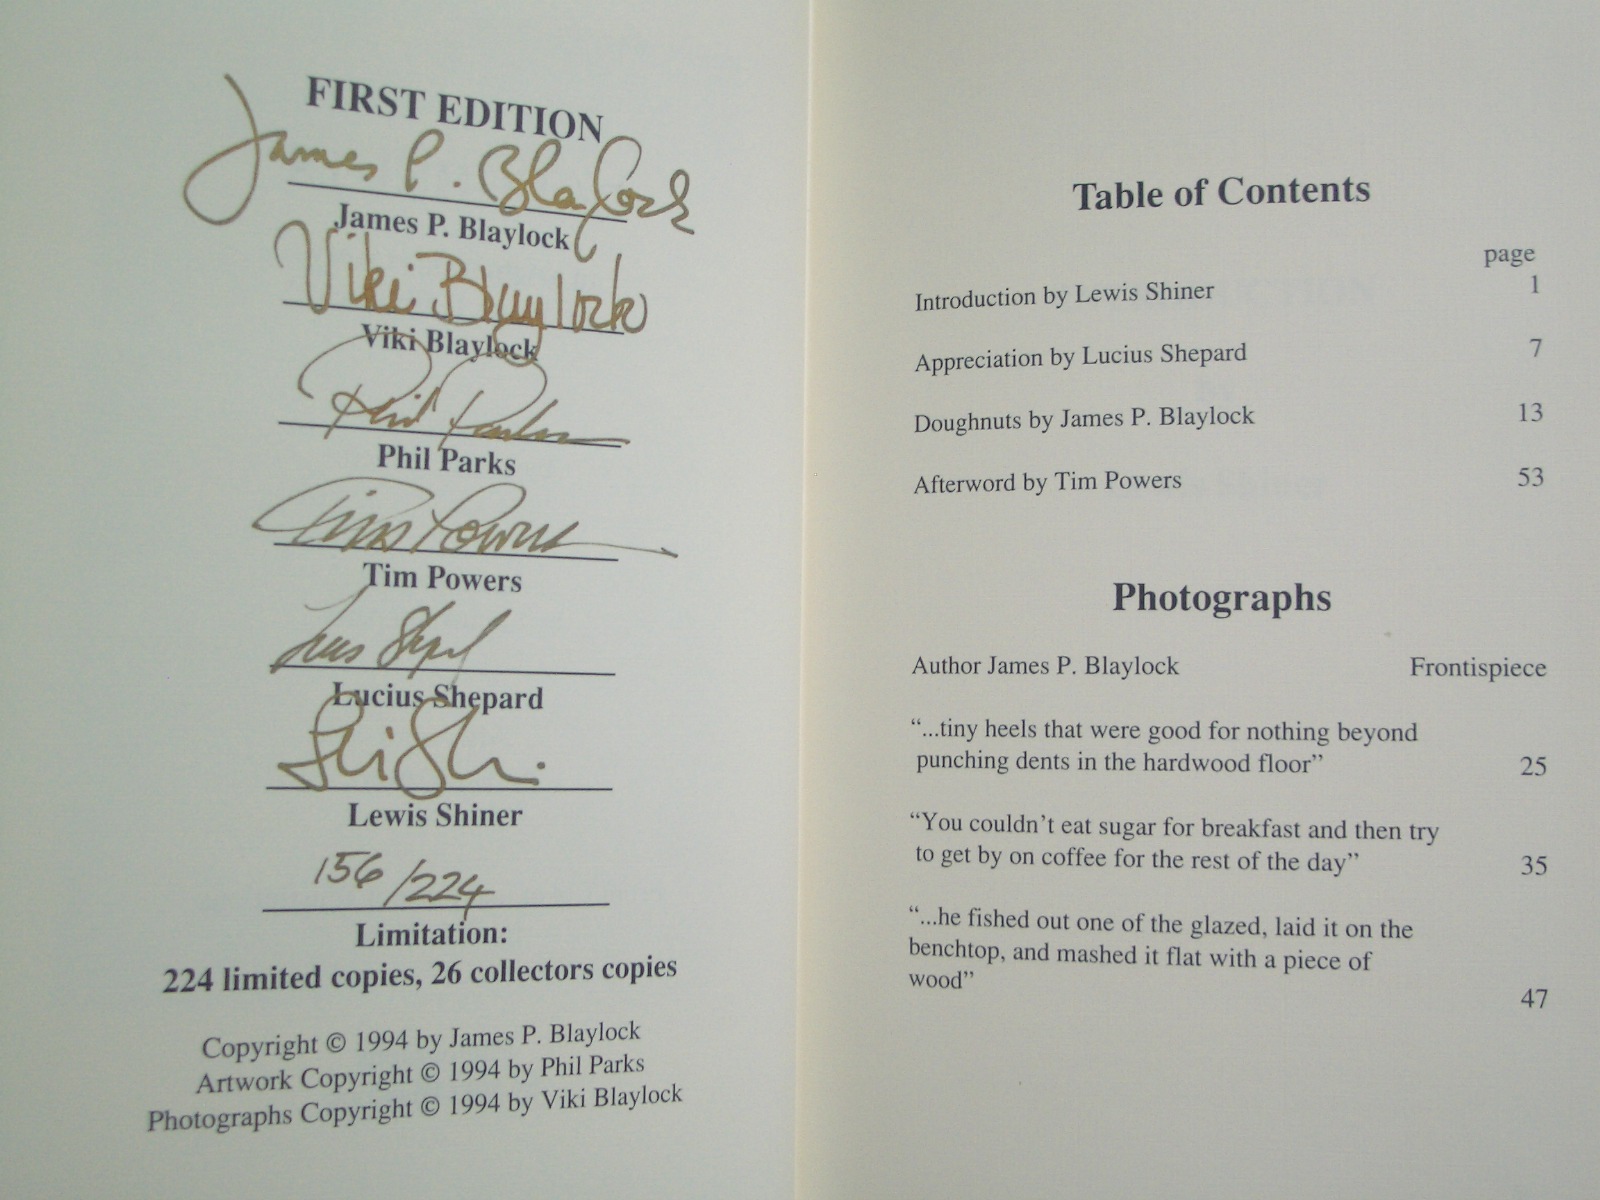 FIRST EDITION
James P. Blaylock
James P. Blaylock
Viki Blaylock
Viki Blaylock
Phil Parks
Phil Parks
Tim Powers
Tim Powers
Lucius Shepard
Lewis Shiner
156/224
Limitation:
224 limited copies, 26 collectors copies
Copyright © 1994 by James P. Blaylock
Artwork Copyright © 1994 by Phil Parks
Photographs Copyright © 1994 by Viki Blaylock
Table of Contents
page
Introduction by Lewis Shiner 1
Appreciation by Lucius Shepard 7
Doughnuts by James P. Blaylock 13
Afterword by Tim Powers 53
Photographs
Author James P. Blaylock Frontispiece
“...tiny heels that were good for nothing beyond
punching dents in the hardwood floor” 25
“You couldn’t eat sugar for breakfast and then try
to get by on coffee for the rest of the day” 35
“...he fished out one of the glazed, laid it on the
benchtop, and mashed it flat with a piece of
wood”
47